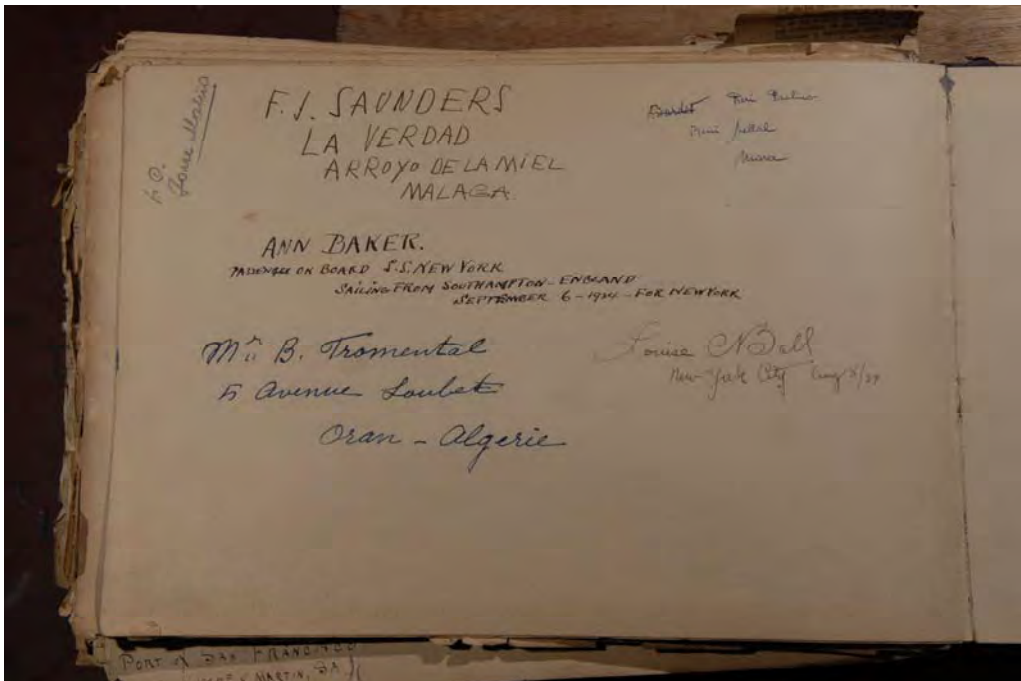 F. J. SAUNDERS
LA VERDAD
ARROYO DE LA MIEL
MALAGA.
ANN BAKER.
PASSENGER ON BOARD S.S. NEW YORK
SAILING FROM SOUTHAMPTON - ENGLAND
SEPTEMBER 6 - 1934 - FOR NEW YORK
Mr B. Tromental
5 Avenue Loubet
Oran - Algerie
Louise C Ball
New York City Aug 8/34
PORT of SAN FRANCISCO
MARTIN,